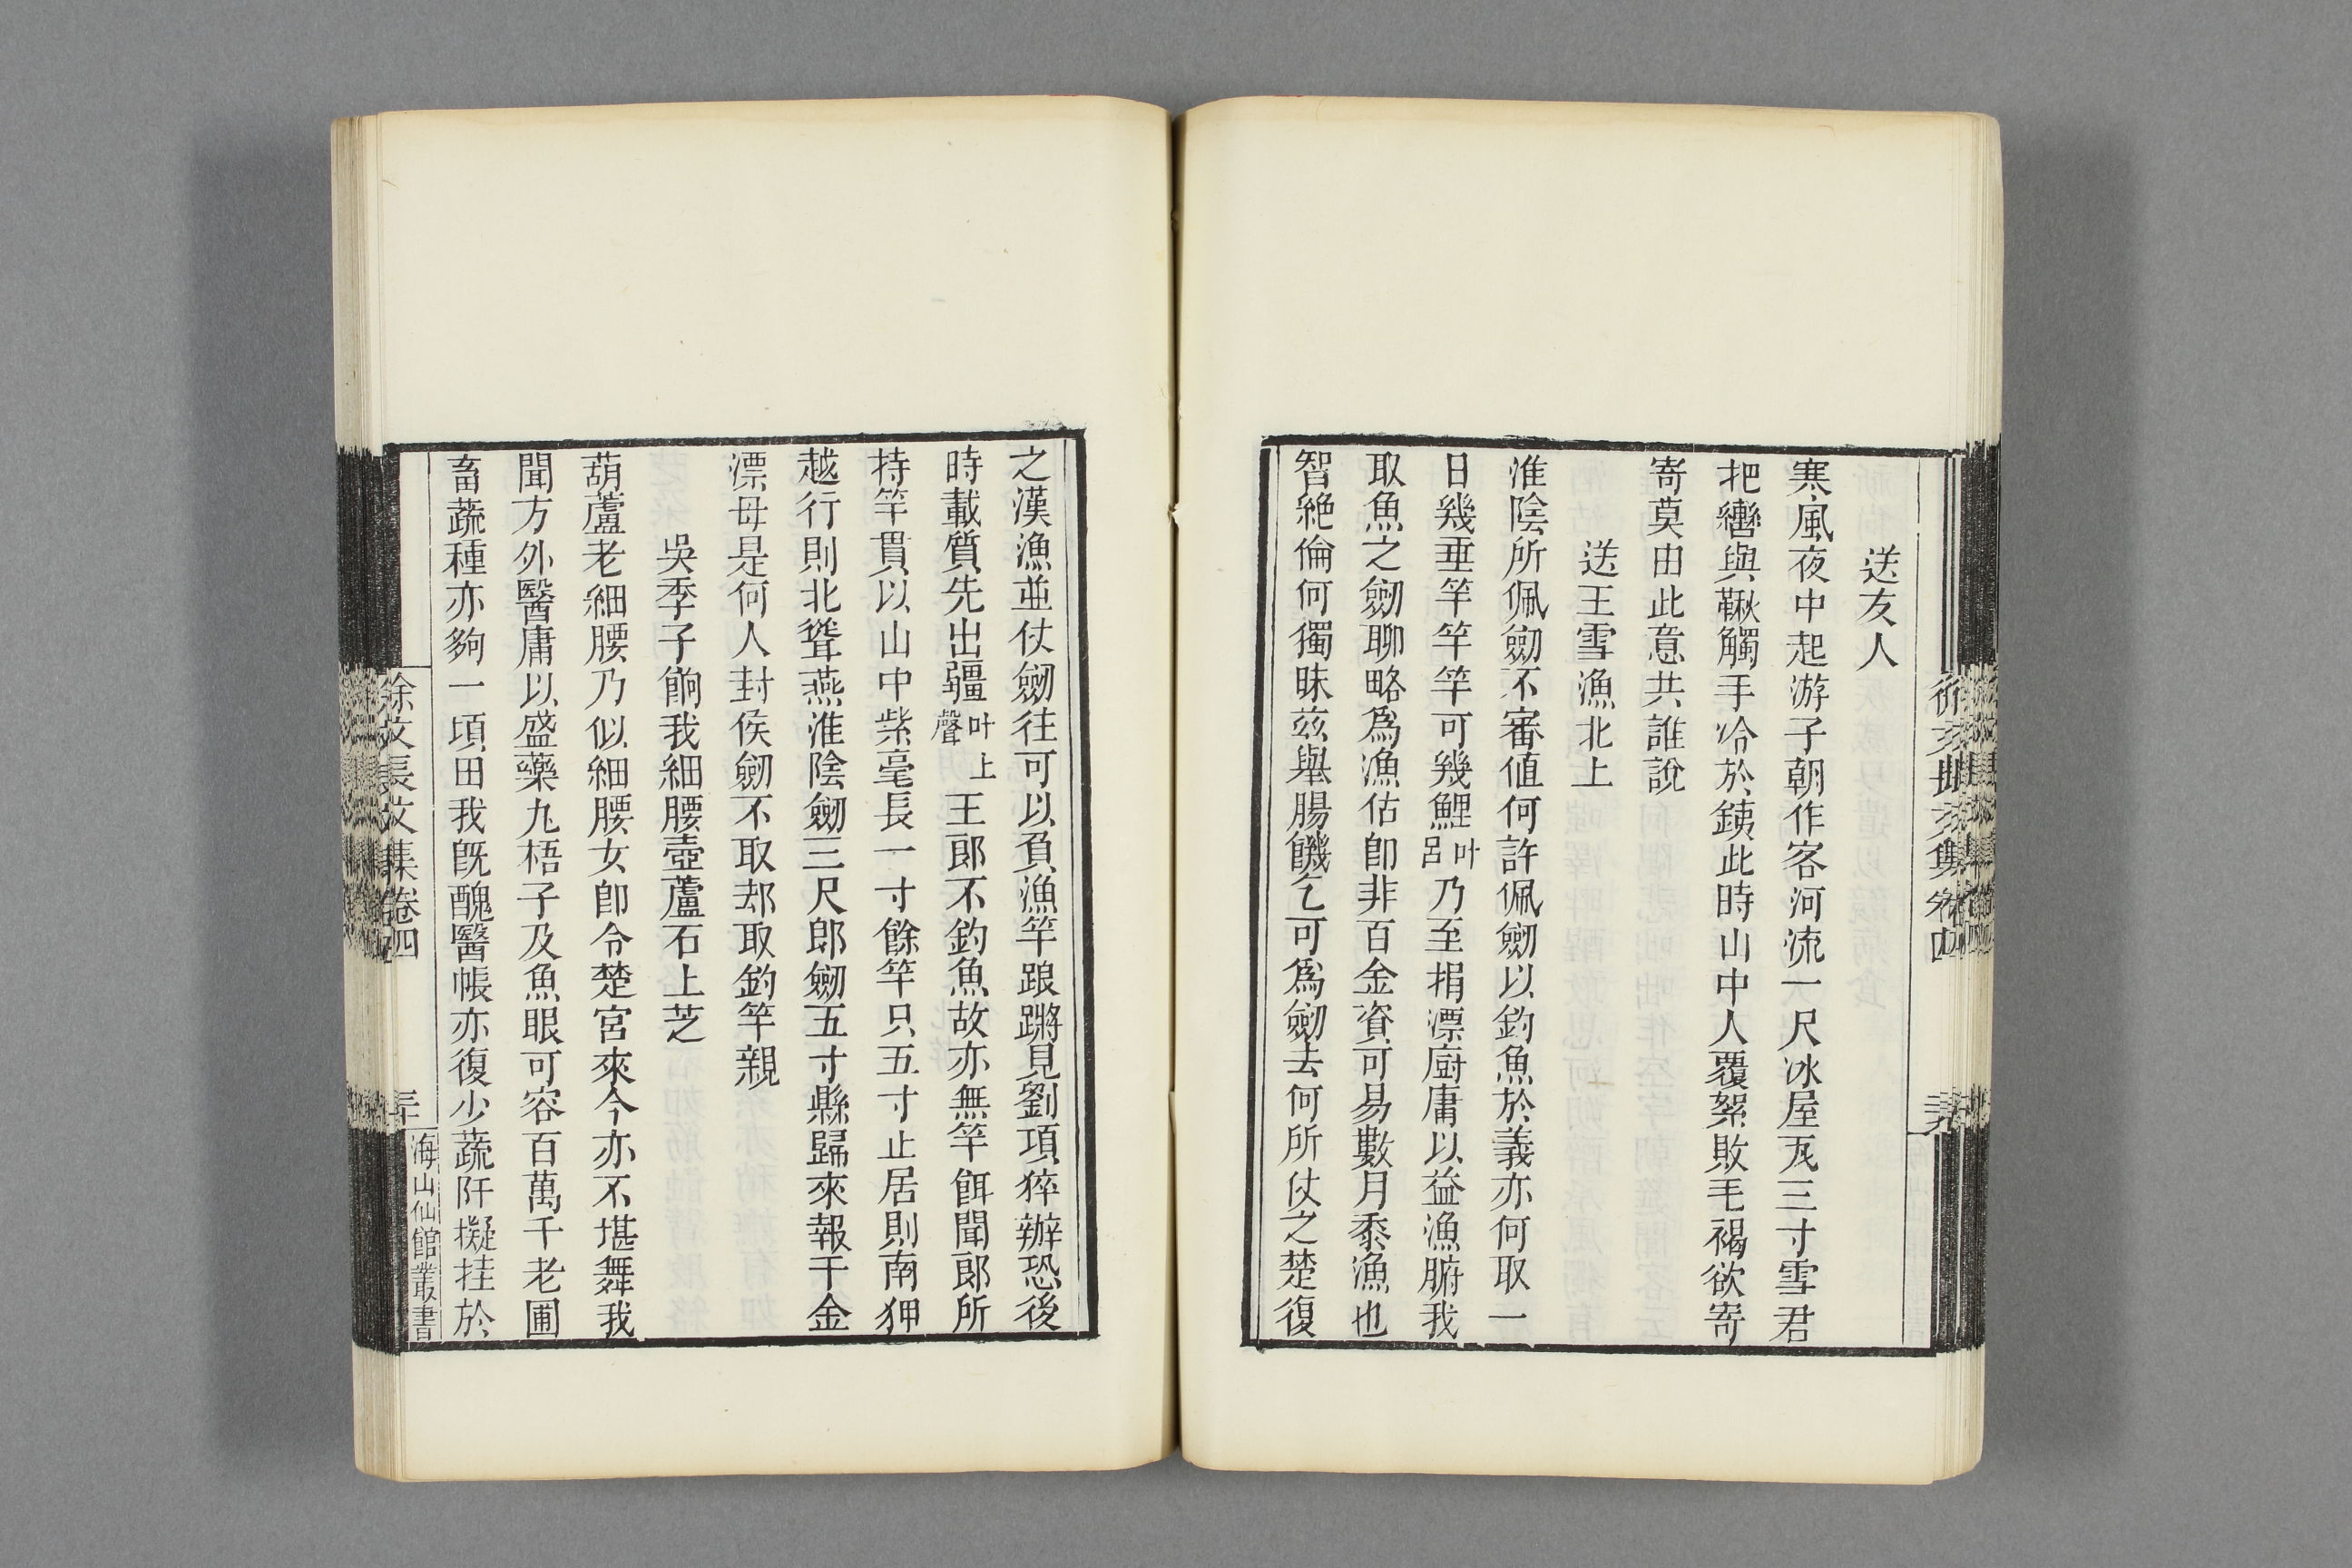 送友人
寒風夜中起游子朝作客河流一尺冰屋瓦三寸雪君
把轡與鞦觸手冷於銕此時山中人覆絮敗毛褐欲寄
寄莫由此意共誰說
送王雪漁北上
淮陰所佩劒不審値何許佩劒以釣魚於義亦何取一
日幾垂竿竿竿可幾鯉叶呂乃至捐漂廚庸以益漁腑我
取魚之劒聊略爲漁估卽非百金資可易數月黍漁也
智絶倫何獨昧兹舉腸饑乞可爲劒去何所仗之楚復
之漢漁並仗劒往可以負漁竿踉蹡見劉項猝辦恐後
時載質先出疆叶上聲王郎不釣魚故亦無竿餌聞郎所
持竿貫以山中紫毫長一寸餘竿只五寸止居則南狎
越行則北聳燕淮陰劒三尺郎劒五寸縣歸來報千金
漂母是何人封侯劒不取却取釣竿親
吳季子餉我細腰壺蘆石上芝
葫蘆老細腰乃似細腰女卽令楚宮來今亦不堪舞我
聞方外醫庸以盛藥丸梧子及魚眼可容百萬千老圃
畜蔬種亦夠一項田我旣醜醫帳亦復少蔬阡擬挂於
徐文長文集卷四
三十
海山仙館叢書